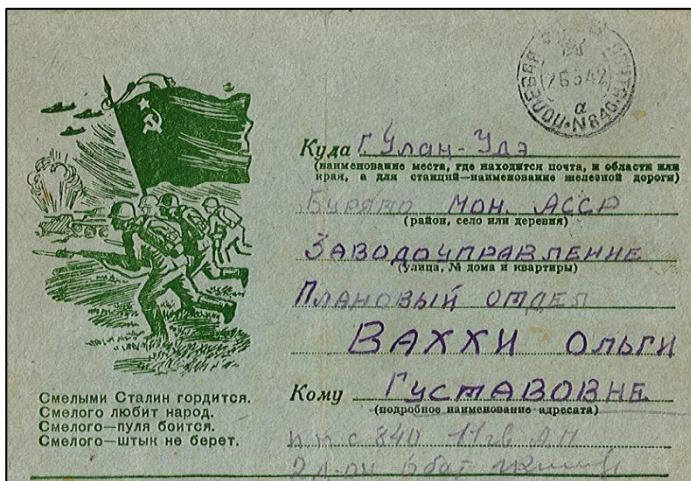 ПОЛЕВАЯ ПОЧТА N 840
26 3 42
а
Куда г. Улан-Удэ
(наименование места, где находится почта, и области или
края, а для станций—наименование железной дороги)
Бурято Мон. АССР
(район, село или деревня)
Заводоуправление
(улица, № дома и квартиры)
Плановый отдел
Ваххи Ольги
Кому Густавовне
(подробное наименование адресата)
ппс 840 11 гв АП
2 д-он 6 бат
Смелыми Сталин гордится.
Смелого любит народ.
Смелого—пуля боится.
Смелого—штык не берет.